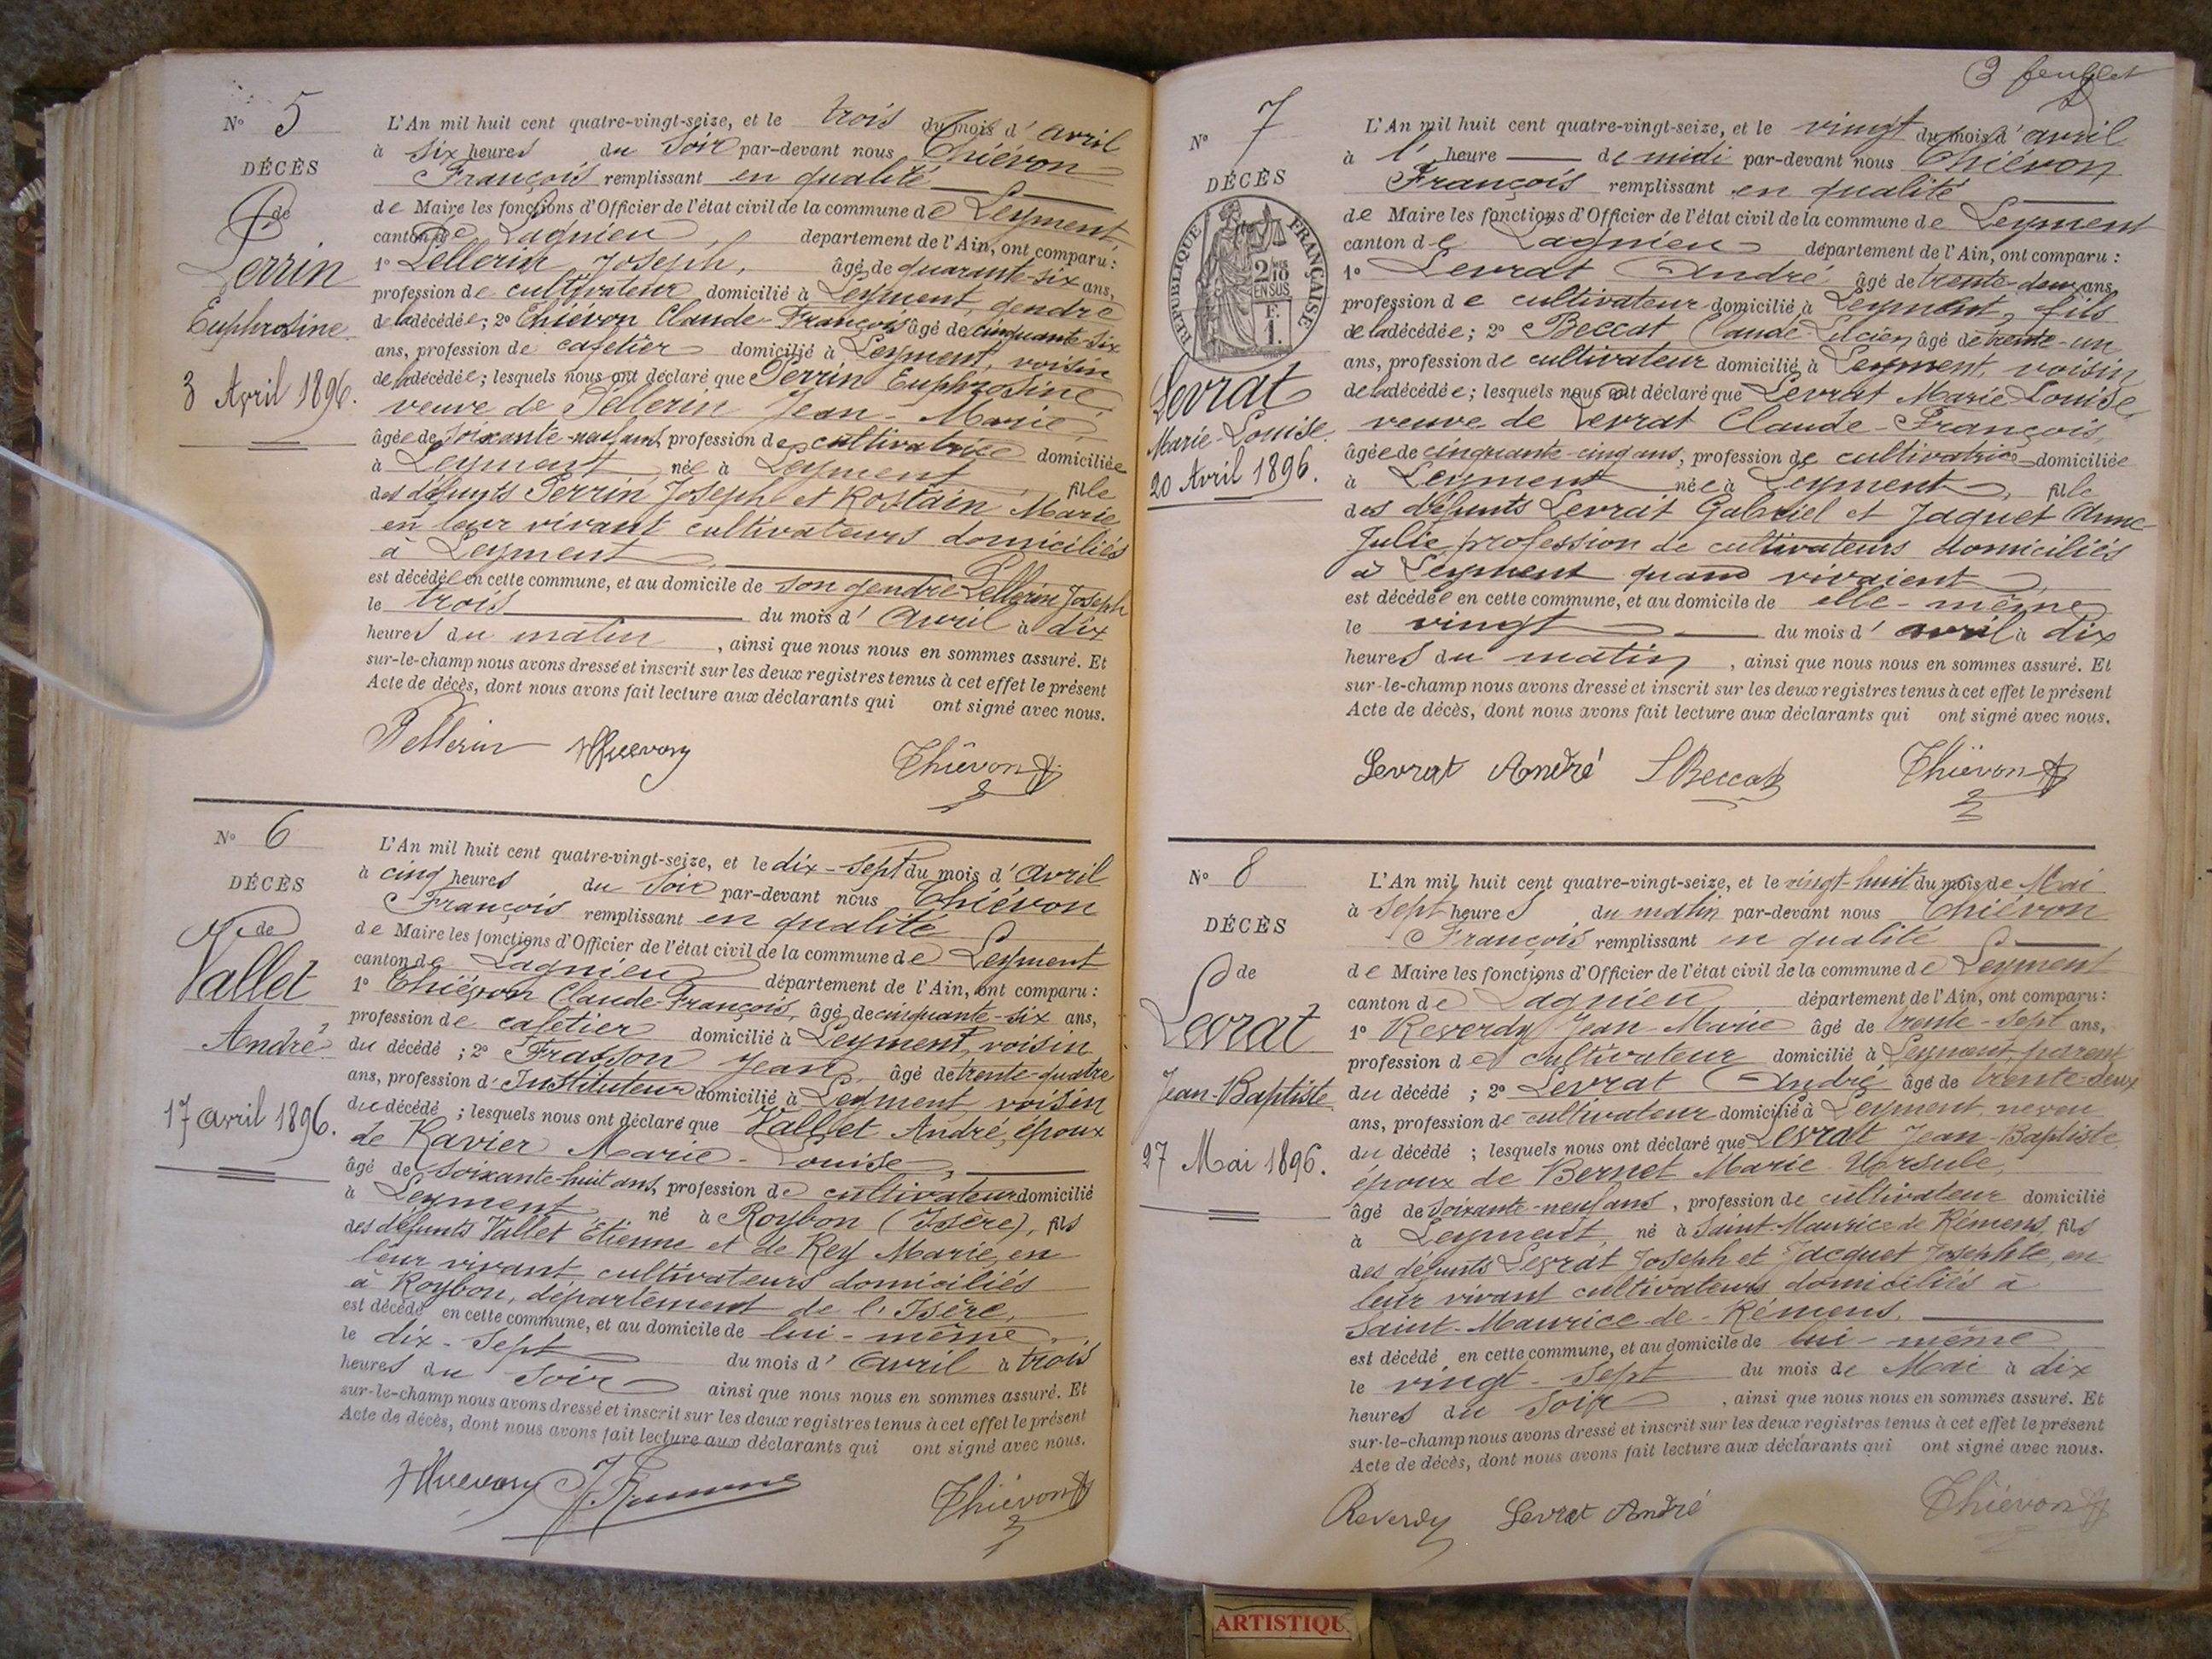 N° 5
DÉCÈS
de
Perrin
Euphrosine
3 Avril 1896.
L'An mil huit cent quatre-vingt-seize, et le trois du mois d' avril
à six heures du Soir par-devant nous Thiévon
François remplissant en qualité
de Maire les fonctions d'Officier de l'état civil de la commune de Leyment,
canton de Lagnieu, département de l'Ain, ont comparu :
1° Pellerin Joseph, âgé de quarante-six ans,
profession de cultivateur domicilié à Leyment, gendre
de la décédée; 2° Thiévon Claude-François âgé de cinquante-six
ans, profession de cafetier domicilié à Leyment, voisin
de la décédée; lesquels nous ont déclaré que Perrin Euphrosine,
veuve de Pellerin Jean-Marie,
âgée de soixante-neuf ans, profession de cultivatrice domiciliée
à Leyment née à Leyment, fille
des défunts Perrin Joseph et Rostain Marie
en leur vivant cultivateurs domiciliés
à Leyment
est décédée en cette commune, et au domicile de son gendre Pellerin Joseph
le trois du mois d' Avril à dix
heures du matin, ainsi que nous nous en sommes assuré. Et
sur-le-champ nous avons dressé et inscrit sur les deux registres tenus à cet effet le présent
Acte de décès, dont nous avons fait lecture aux déclarants qui ont signé avec nous.
Pellerin Thievon Thiévon
N° 6
DÉCÈS
de
Vallet
André
17 avril 1896.
L'An mil huit cent quatre-vingt-seize, et le dix-sept du mois d' Avril
à cinq heures du Soir par-devant nous Thiévon
François remplissant en qualité
de Maire les fonctions d'Officier de l'état civil de la commune de Leyment
canton de Lagnieu département de l'Ain, ont comparu :
1° Thiévon Claude-François, âgé de cinquante-six ans,
profession de cafetier domicilié à Leyment, voisin
du décédé ; 2° Frasson Jean, âgé de trente-quatre
ans, profession d' Instituteur domicilié à Leyment, voisin
du décédé ; lesquels nous ont déclaré que Vallet André, époux
de Ravier Marie-Louise,
âgé de soixante-huit ans, profession de cultivateur domicilié
à Leyment né à Roybon (Isère), fils
des défunts Vallet Etienne et de Rey Marie, en
leur vivant cultivateurs domiciliés
à Roybon, département de l'Isère,
est décédé en cette commune, et au domicile de lui-même,
le dix-sept du mois d' Avril à trois
heures du Soir ainsi que nous nous en sommes assuré. Et
sur-le-champ nous avons dressé et inscrit sur les deux registres tenus à cet effet le présent
Acte de décès, dont nous avons fait lecture aux déclarants qui ont signé avec nous.
Thievon Thiévon
3 feuillet
N° 7
DÉCÈS
RÉPUBLIQUE FRANÇAISE
2/10 EN SUS
F. 1.
Levrat
Marie-Louise.
20 Avril 1896.
L'An mil huit cent quatre-vingt-seize, et le vingt du mois d' avril
à 1 heure de midi par-devant nous Thiévon
François remplissant en qualité
de Maire les fonctions d'Officier de l'état civil de la commune de Leyment
canton de Lagnieu département de l'Ain, ont comparu :
1° Levrat André âgé de trente-deux ans,
profession de cultivateur domicilié à Leyment, fils
de la décédée; 2° Beccat Claude âgé de trente-un
ans, profession de cultivateur domicilié à Leyment, voisin
de la décédée; lesquels nous ont déclaré que Levrat Marie Louise,
veuve de Levrat Claude-François,
âgée de cinquante-cinq ans, profession de cultivatrice domiciliée
à Leyment née à Leyment, fille
des défunts Levrat Gabriel et Jaquet Anne-
Julie profession de cultivateurs domiciliés
à Leyment quand vivaient,
est décédée en cette commune, et au domicile de elle-même
le vingt du mois d' avril à dix
heures du matin, ainsi que nous nous en sommes assuré. Et
sur-le-champ nous avons dressé et inscrit sur les deux registres tenus à cet effet le présent
Acte de décès, dont nous avons fait lecture aux déclarants qui ont signé avec nous.
Levrat André Beccat Thiévon
N° 8
DÉCÈS
de
Levrat
Jean-Baptiste
27 Mai 1896.
L'An mil huit cent quatre-vingt-seize, et le vingt-huit du mois de Mai
à sept heures du matin par-devant nous Thiévon
François remplissant en qualité
de Maire les fonctions d'Officier de l'état civil de la commune de Leyment
canton de Lagnieu département de l'Ain, ont comparu :
1° Reverdy Jean-Marie âgé de trente-sept ans,
profession de cultivateur domicilié à Leyment, parent
du décédé ; 2° Levrat André âgé de trente-deux
ans, profession de cultivateur domicilié à Leyment, neveu
du décédé ; lesquels nous ont déclaré que Levrat Jean-Baptiste
époux de Bernet Marie Ursule,
âgé de soixante-neuf ans, profession de cultivateur domicilié
à Leyment, né à Saint-Maurice de Rémens, fils
des défunts Levrat Joseph et Jacquet Josephte, en
leur vivant cultivateurs domiciliés à
Saint-Maurice-de-Rémens.
est décédé en cette commune, et au domicile de lui-même
le vingt-sept du mois de Mai à dix
heures du Soir, ainsi que nous nous en sommes assuré. Et
sur-le-champ nous avons dressé et inscrit sur les deux registres tenus à cet effet le présent
Acte de décès, dont nous avons fait lecture aux déclarants qui ont signé avec nous.
Reverdy Levrat André Thiévon
ARTISTIQU